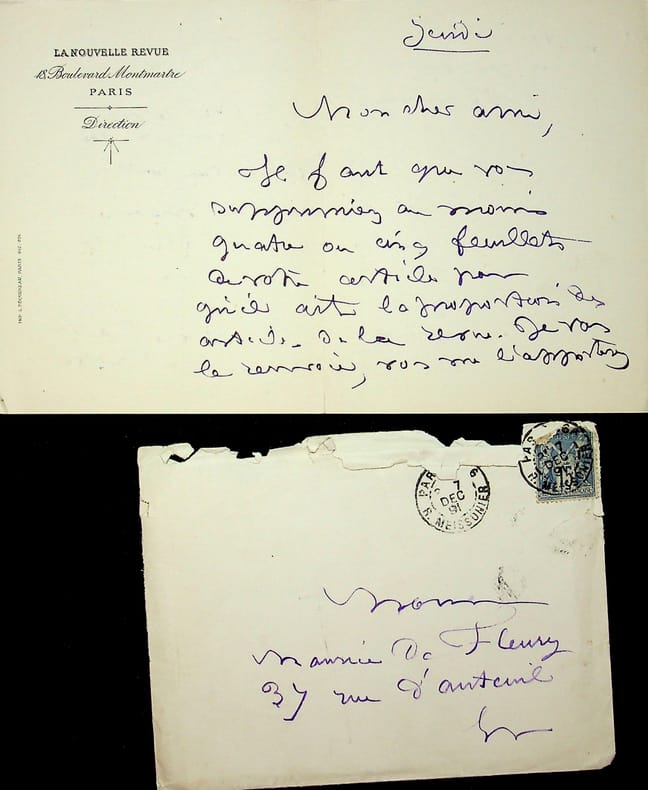 LA NOUVELLE REVUE
18, Boulevard Montmartre
PARIS
Direction
Jeudi
Mon cher ami,
Il faut que vous
supprimiez au moins
quatre ou cinq feuillets
de votre article pour
qu'il ait la proportion des
articles de la revue. Je vous
le renvoie, vous me l'apporterez
PARIS
7
DEC
91
R. MEISSONIER
7
DEC
R. MEISSONIER
Monsieur
Maurice de Fleury
37 rue d'auteuil